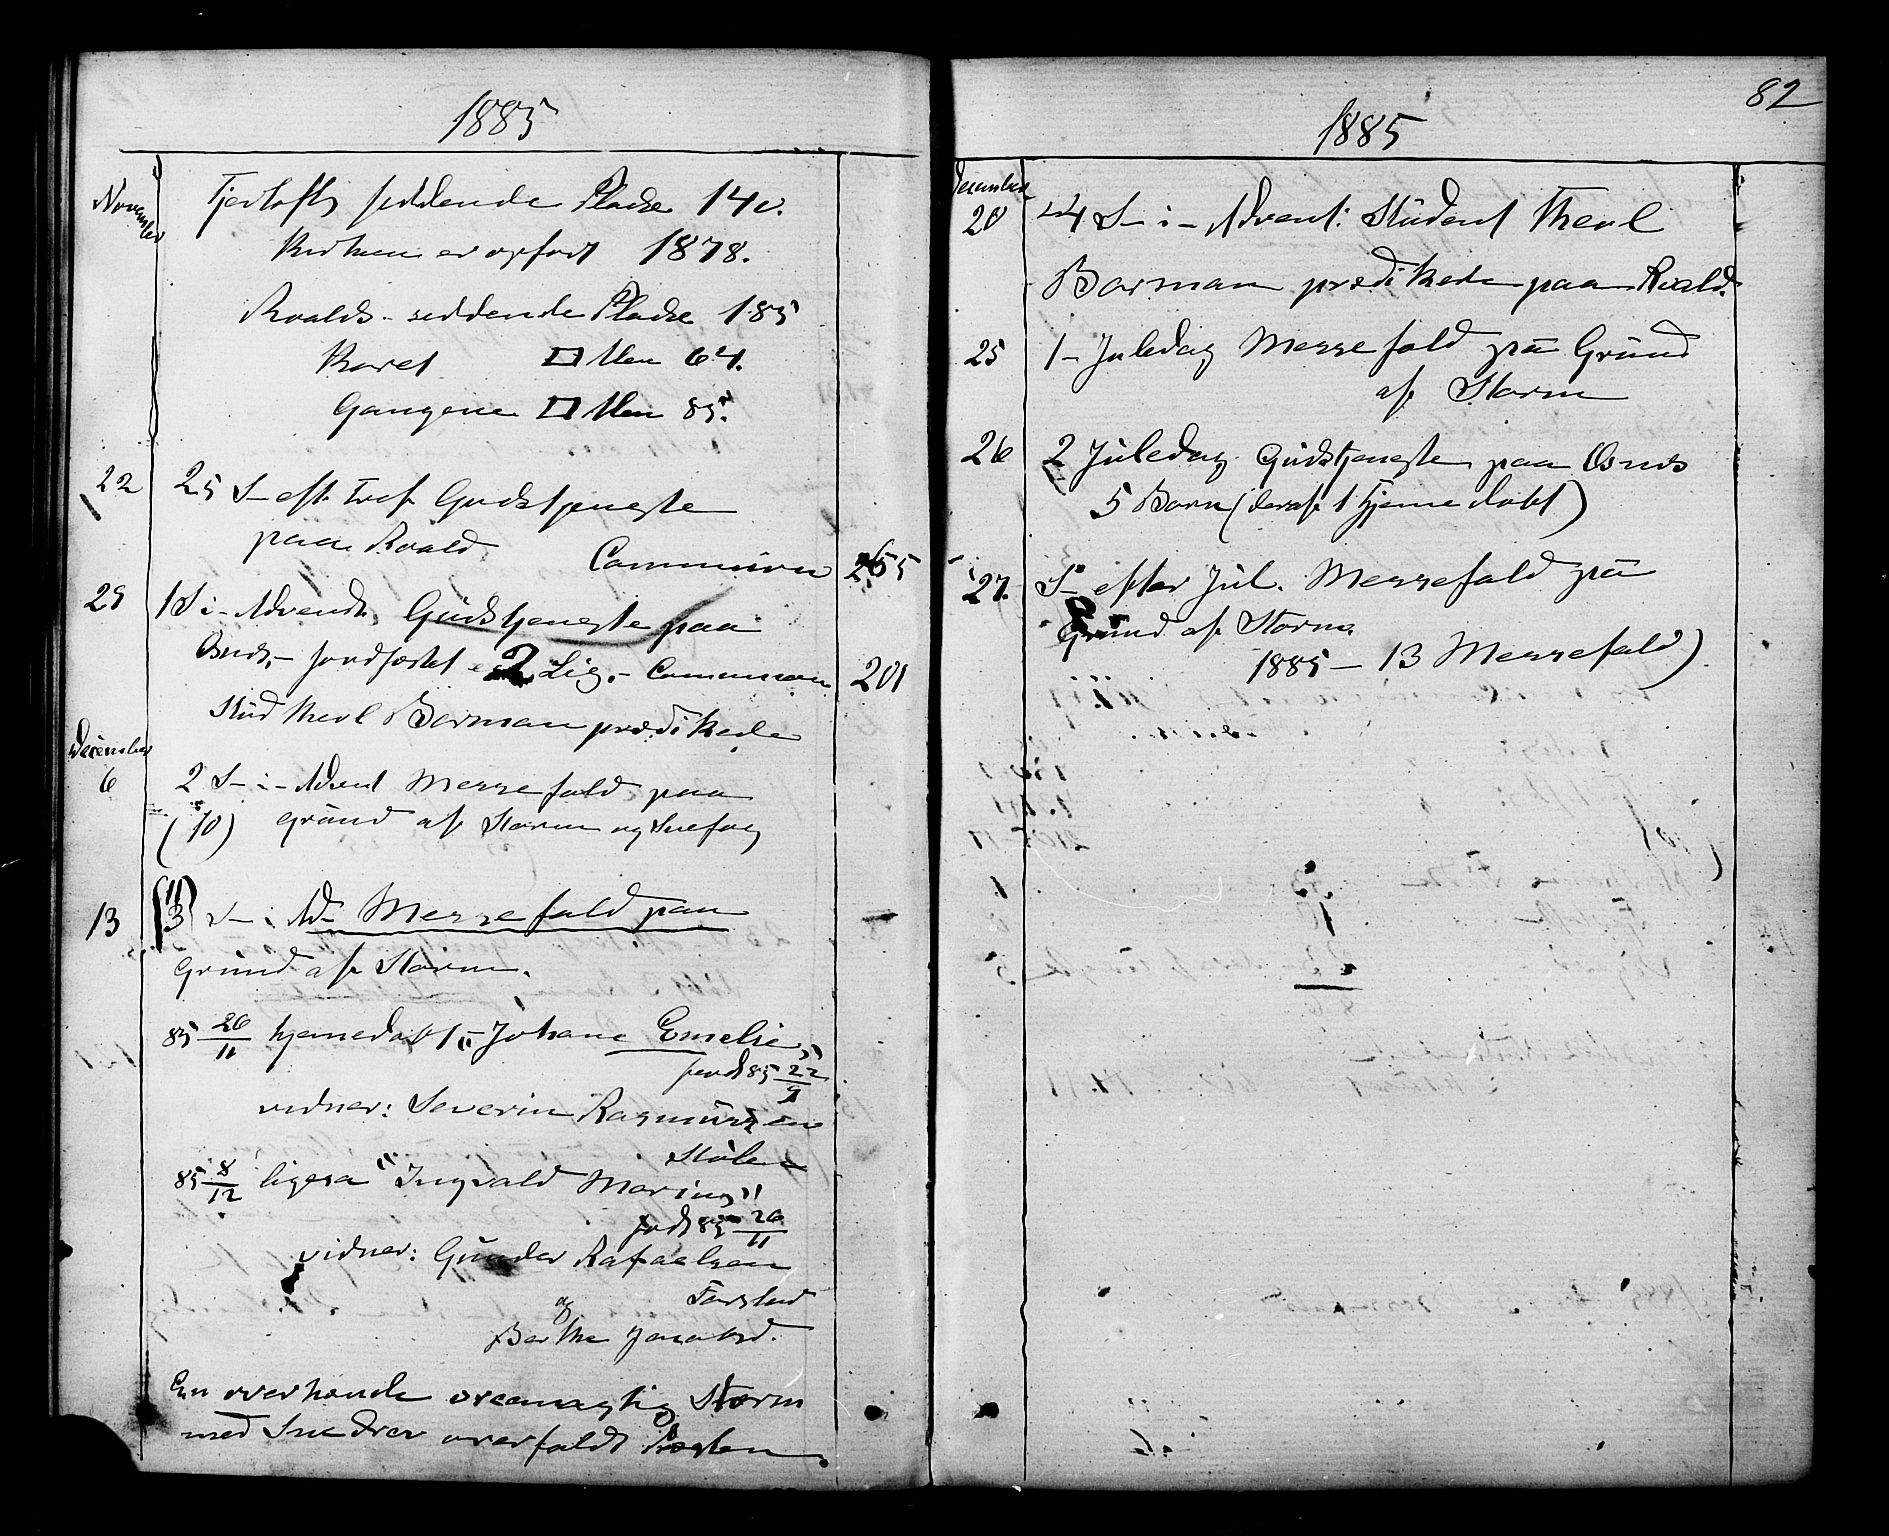 1885
November
Fjertofts siddende Pladse 140.
Kirken er opført 1878.
Roalds - siddende Pladse 185
Koret □ Alen 64.
Gangene □ Alen 85.
22 25 S. eft. Tref. Gudstjeneste
paa Roald Communion 255
29 1 S. i Advendt, Gudstjeneste paa
Osnes, - jordfæstet 2 Lig. - Communion 201
Stud theol Borman prædikede
December
6 2 S. i Advent Messefald paa
(10) Grund af Storm og Snefog
13 (11) 3 S. i Ad. Messefald paa
Grund af Storm.
85 26/11 hjemedøbt "Johane Emelie"
født 85 22/9
vidner: Severin Rasmussen
Stølen
85 8/12 ligesa "Ingvald Marius"
født 85 26/11
vidner: Gunder Rafaelsen
og Farstad
Berthe Jonetsd.
En overhænde oreemagtig Storm
med Snedrev overfaldt Præsten.
82
1885
December
20 4 S. i Advent: Student Theol
Borman prædikede paa Roald.
25 1 Juledag Messefald på Grund
af Storm
26 2 Juledag Gudstjeneste paa Osnes
5 Børn (deraf 1 hjemedøbt)
27. S. efter Jul. Messefald på
Grund af Storm.
1885 - 13 Messefald)